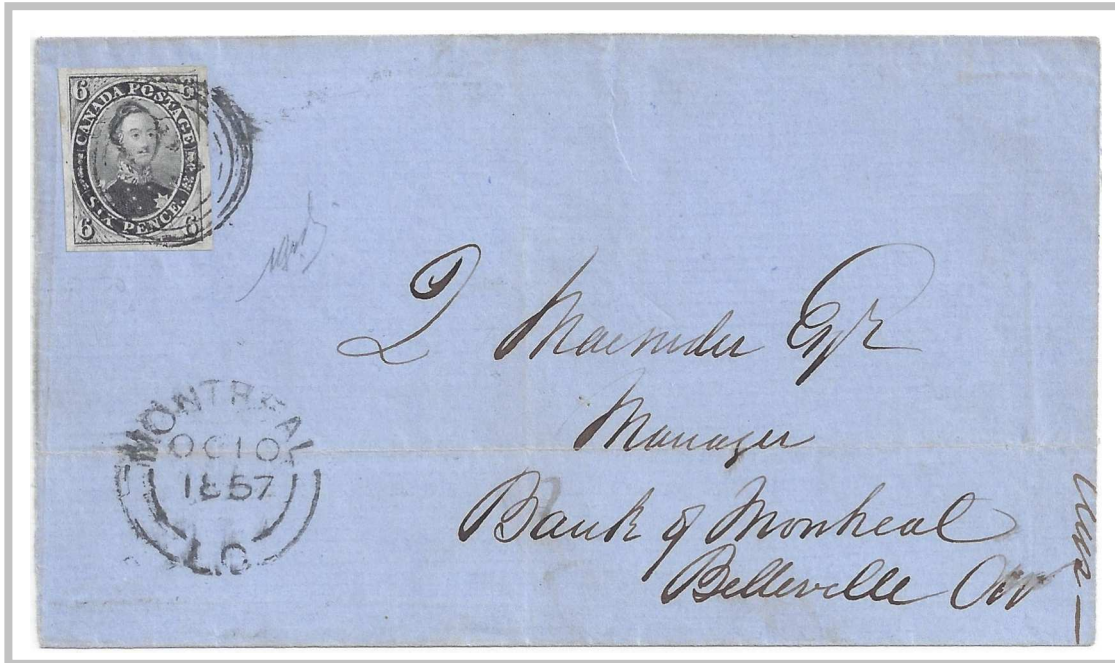 6 6
CANADA POSTAGE
SIX PENCE.
6 6
Manager
Bank of Montreal
Belleville
MONTREAL
OC 10
1857
L.C